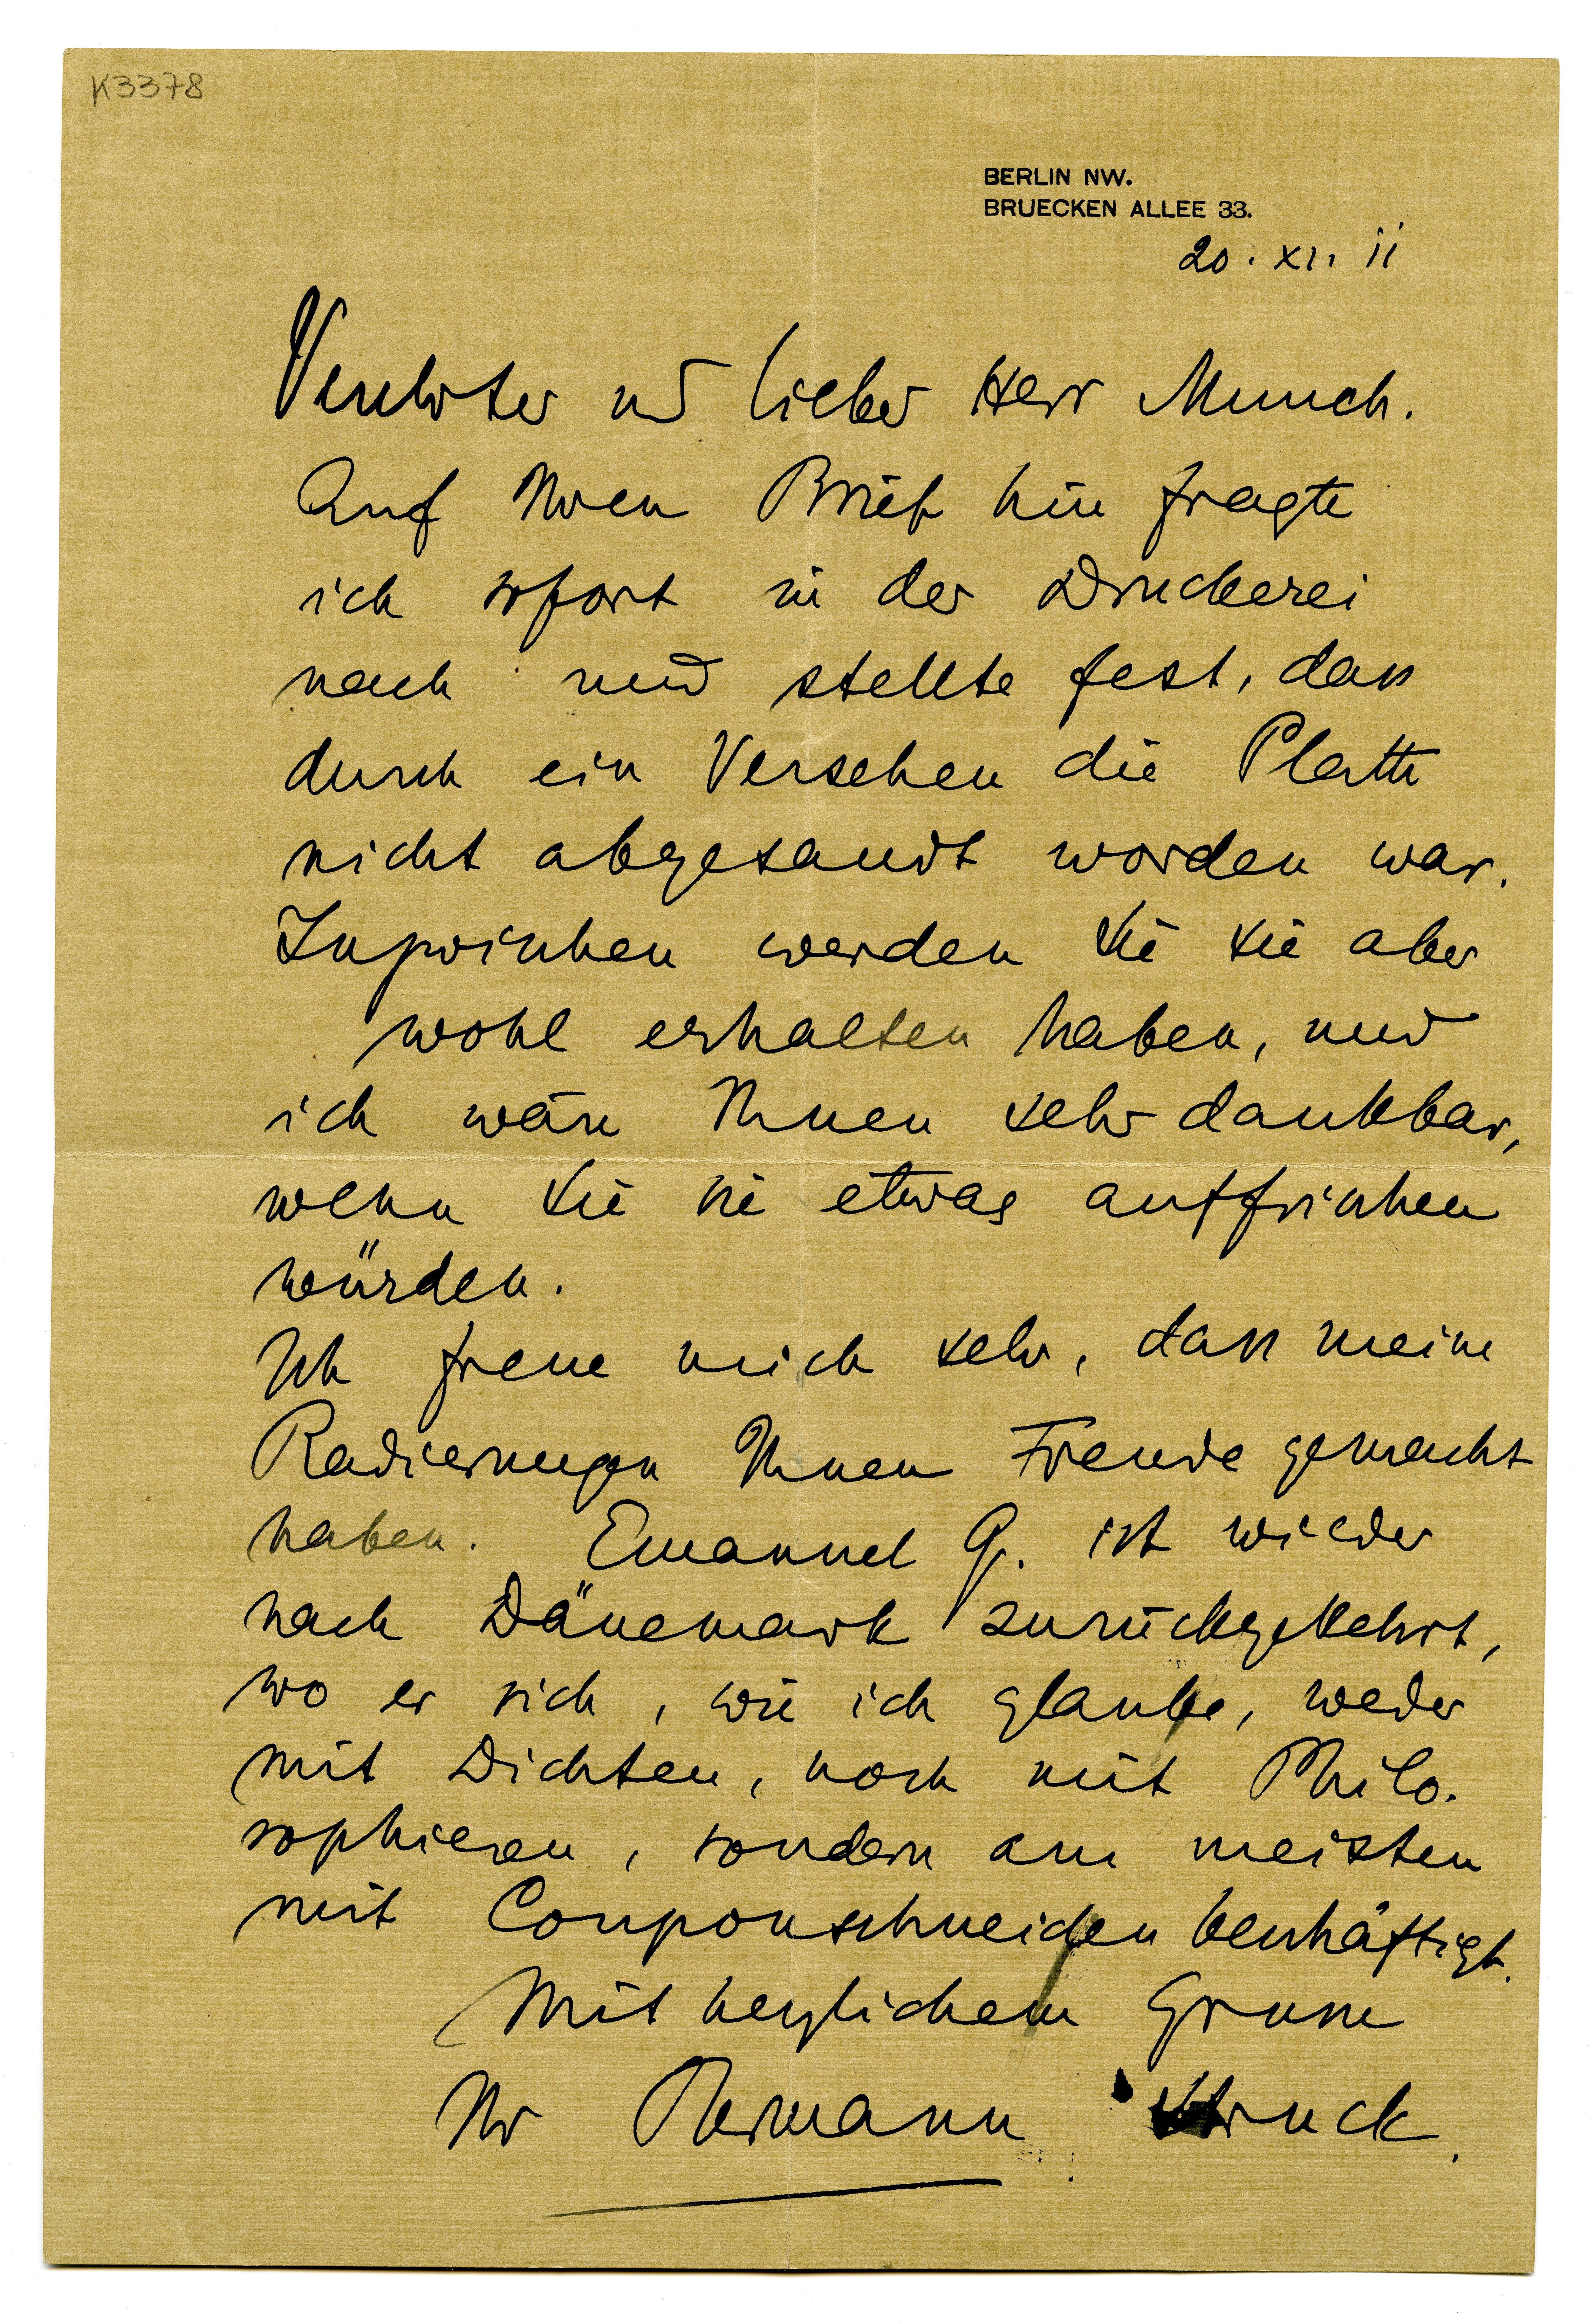 K3378
BERLIN NW.
BRUECKEN ALLEE 33.
20. XI. 11
Verehrter und lieber Herr Munch.
Auf Ihren Brief hin fragte
ich sofort in der Druckerei
nach und stellte fest, dass
durch ein Versehen die Platte
nicht abgesandt worden war.
Inzwischen werden Sie sie aber
wohl erhalten haben, und
ich wäre Ihnen sehr dankbar,
wenn Sie sie etwas auffrischen
würden.
Ich freue mich sehr, dass meine
Radierungen Ihnen Freude gemacht
haben. Emanuel G. ist wieder
nach Dänemark zurückgekehrt,
wo er sich, wie ich glaube, weder
mit Dichten, noch mit Philo-
sophieren, sondern am meisten
mit Couponschneiden beschäftigt.
Mit herzlichem Grusse
Ihr Hermann Struck.